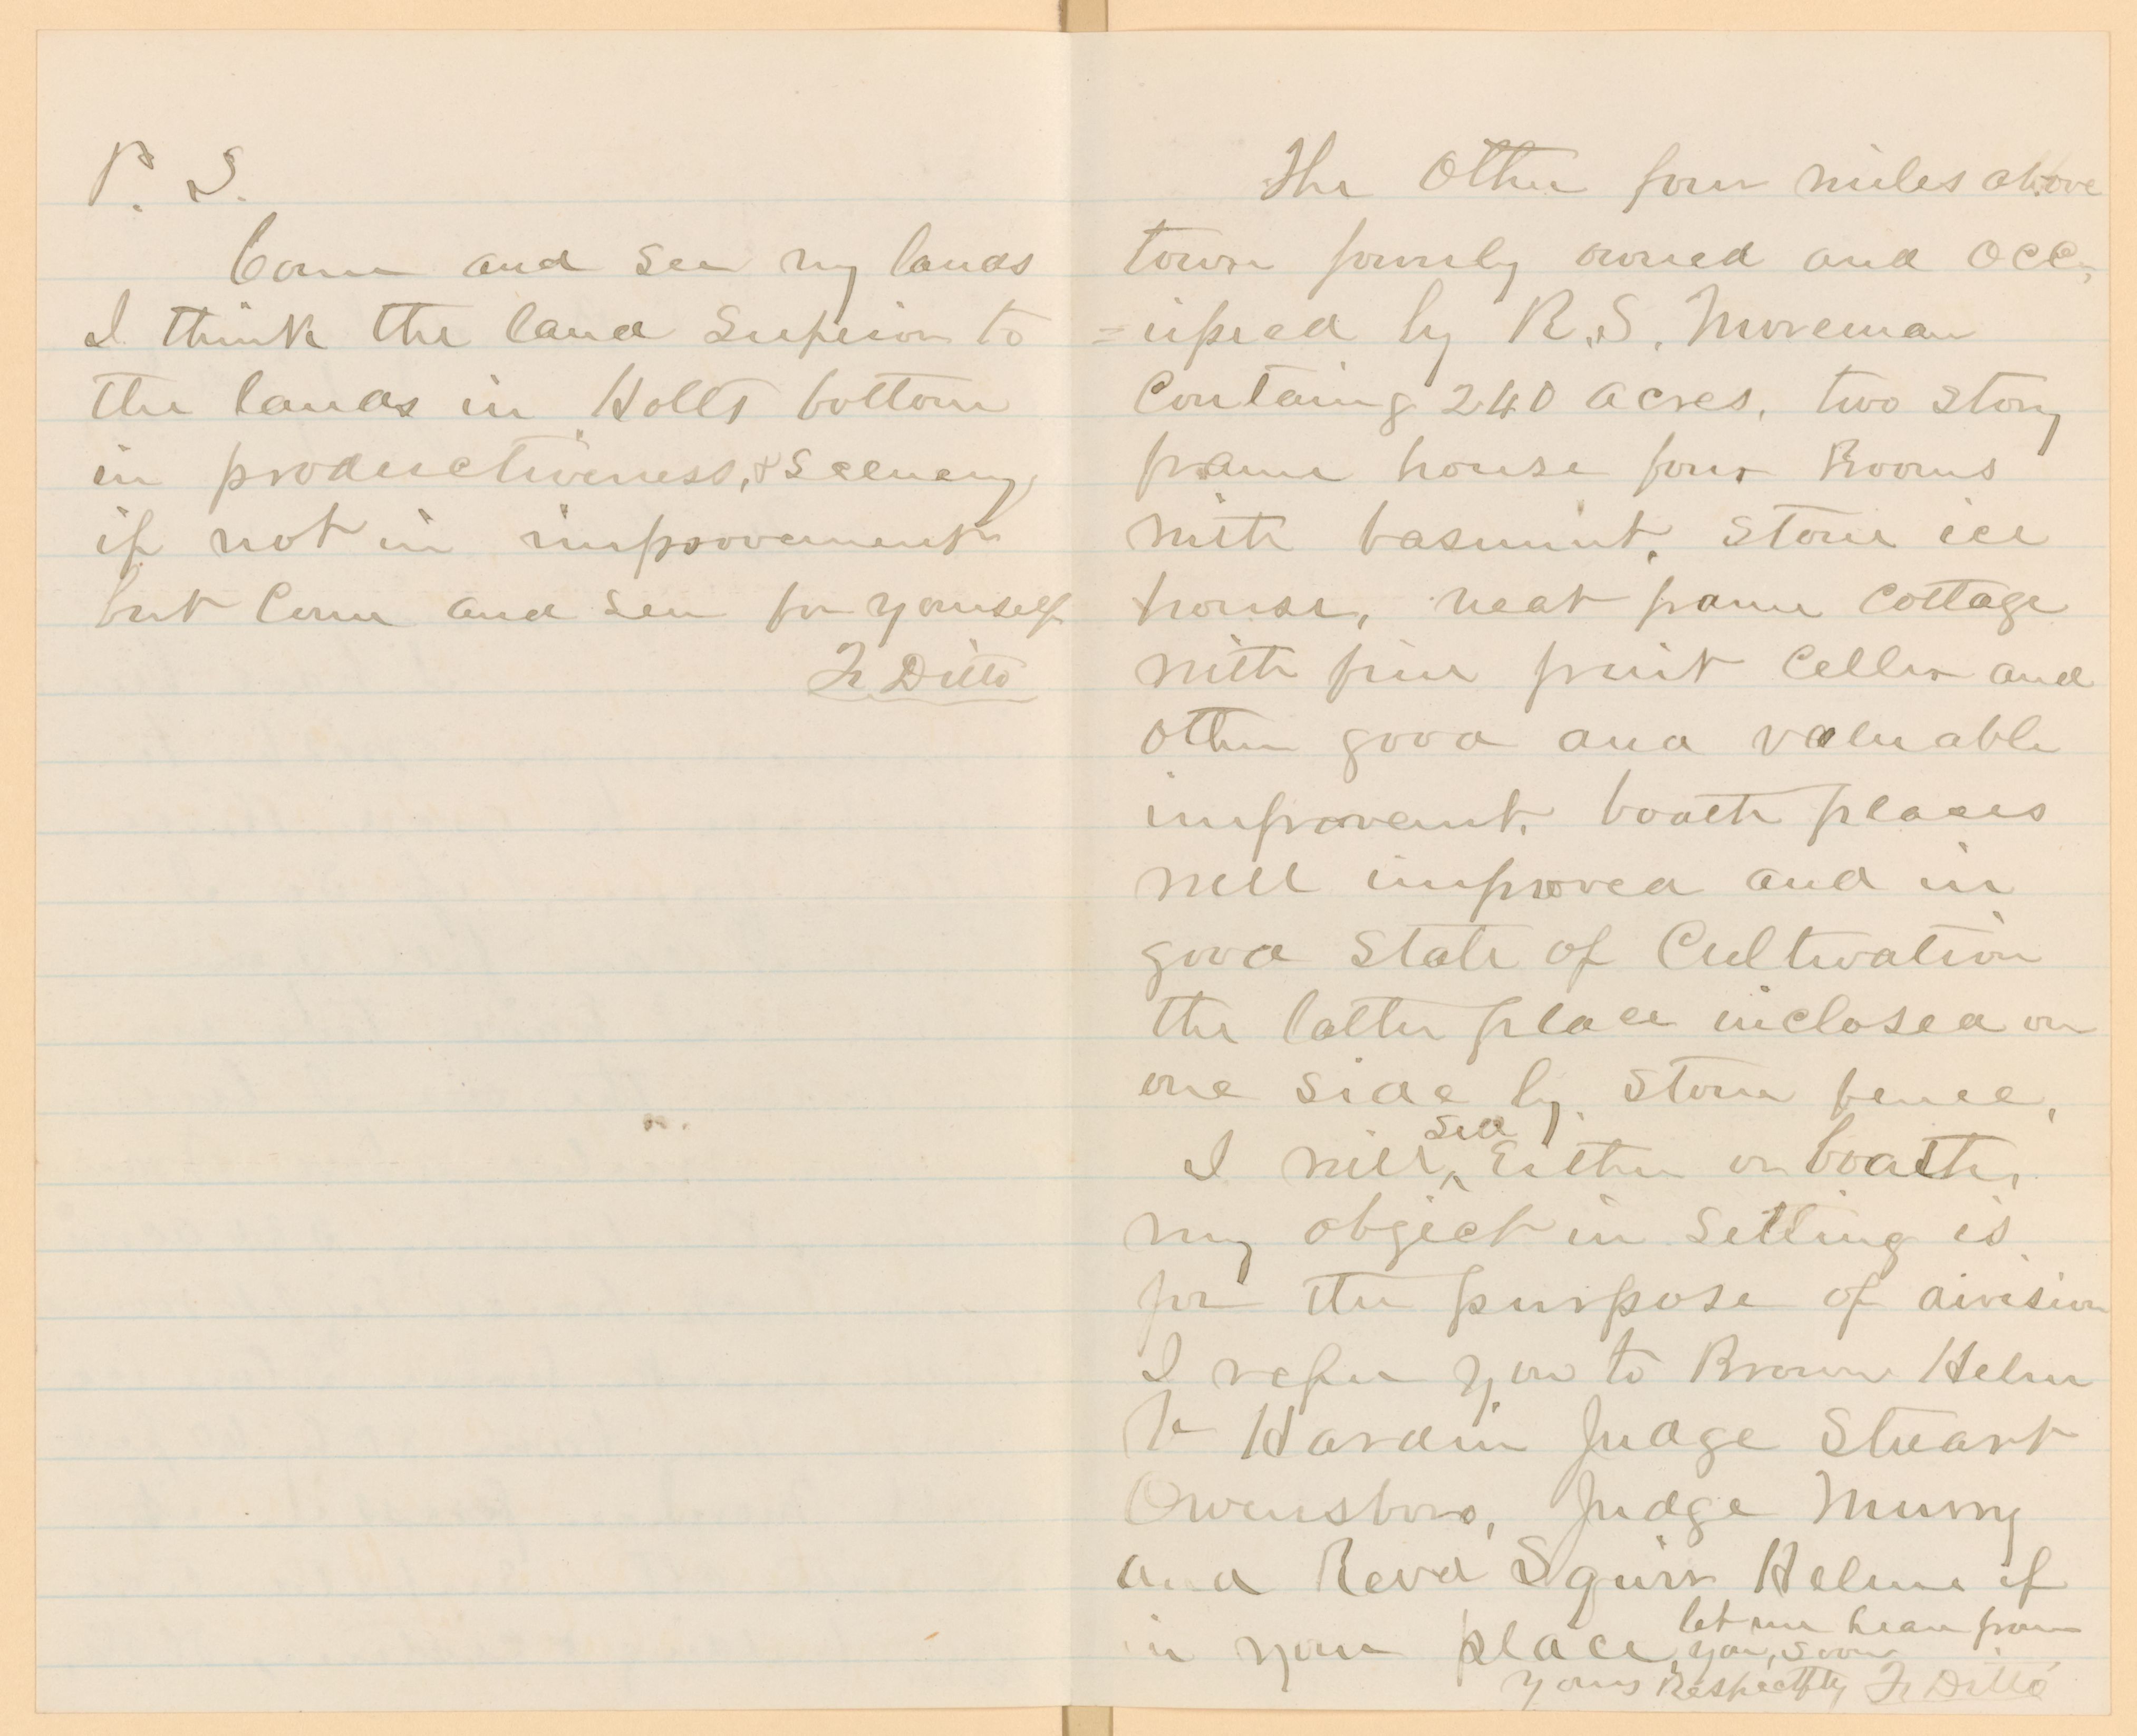 P. S.
Come and see my lands
I think the land Superior to
the lands in Holts bottom
in productiveness, & Scenery,
if not in improvements
but Come and see for yourself
Ditto
The Other four miles above
town formly owned and occ,
=upied by R. S. Moreman
Containg 240 acres, two story
frame house four Rooms
with basmunt, stone ice
house, neat frame cottage
with fine fruit Celler and
other good and valuable
improvemt, boath places
well improved and in
good State of Cultivation
the latter place inclosed on
one side by stone fence,
sell
I will ^ Either or boath,
my object in Selling is
for the purpose of division
I refer you to Brown Helm
Hardin Judge Stuart
Owensboro, Judge Murry
and Revd Squire Helm if
in your place, let me hear from
you, soon
yours Respectfly Ditto